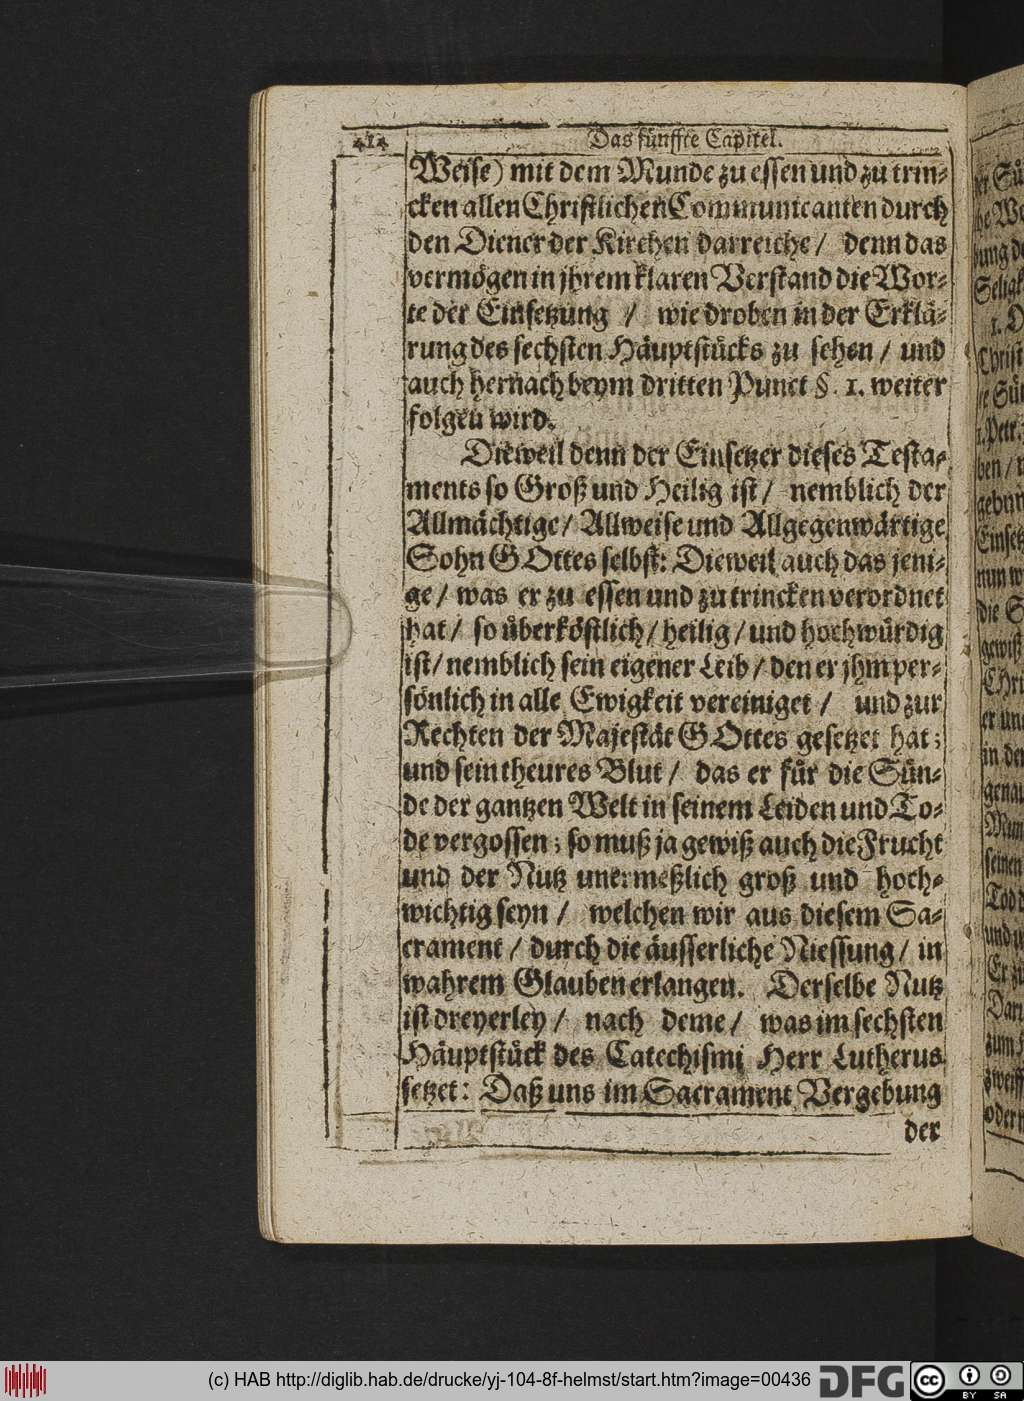 414
Das fünffte Capitel.
Weise) mit dem Munde zu essen und zu trin-
cken allen Christlichen Communicanten durch
den Diener der Kirchen darreiche / denn das
vermögen in jhrem klaren Verstand die Wor-
te der Einsetzung / wie droben in der Erklä-
rung des sechsten Häuptstücks zu sehen / und
auch hernach beym dritten Punct §. 1. weiter
folgen wird.
Dieweil denn der Einsetzer dieses Testa-
ments so Groß und Heilig ist / nemblich der
Allmächtige / Allweise und Allgegenwärtige
Sohn GOttes selbst: Dieweil auch das jeni-
ge / was er zu essen und zu trincken verordnet
hat / so überköstlich / heilig / und hochwürdig
ist / nemblich sein eigener Leib / den er jhm per-
sönlich in alle Ewigkeit vereiniget / und zur
Rechten der Majestät GOttes gesetzet hat;
und sein theures Blut / das er für die Sün-
de der gantzen Welt in seinem Leiden und To-
de vergossen; so muß ja gewiß auch die Frucht
und der Nutz unermeßlich groß und hoch-
wichtig seyn / welchen wir aus diesem Sa-
crament / durch die äusserliche Niessung / in
wahrem Glauben erlangen. Derselbe Nutz
ist dreyerley / nach deme / was im sechsten
Häuptstück des Catechismi Herr Lutherus
setzet: Daß uns im Sacrament Vergebung
der
(c) HAB http://diglib.hab.de/drucke/yj-104-8f-helmst/start.htm?image=00436
DFG
cc BY SA